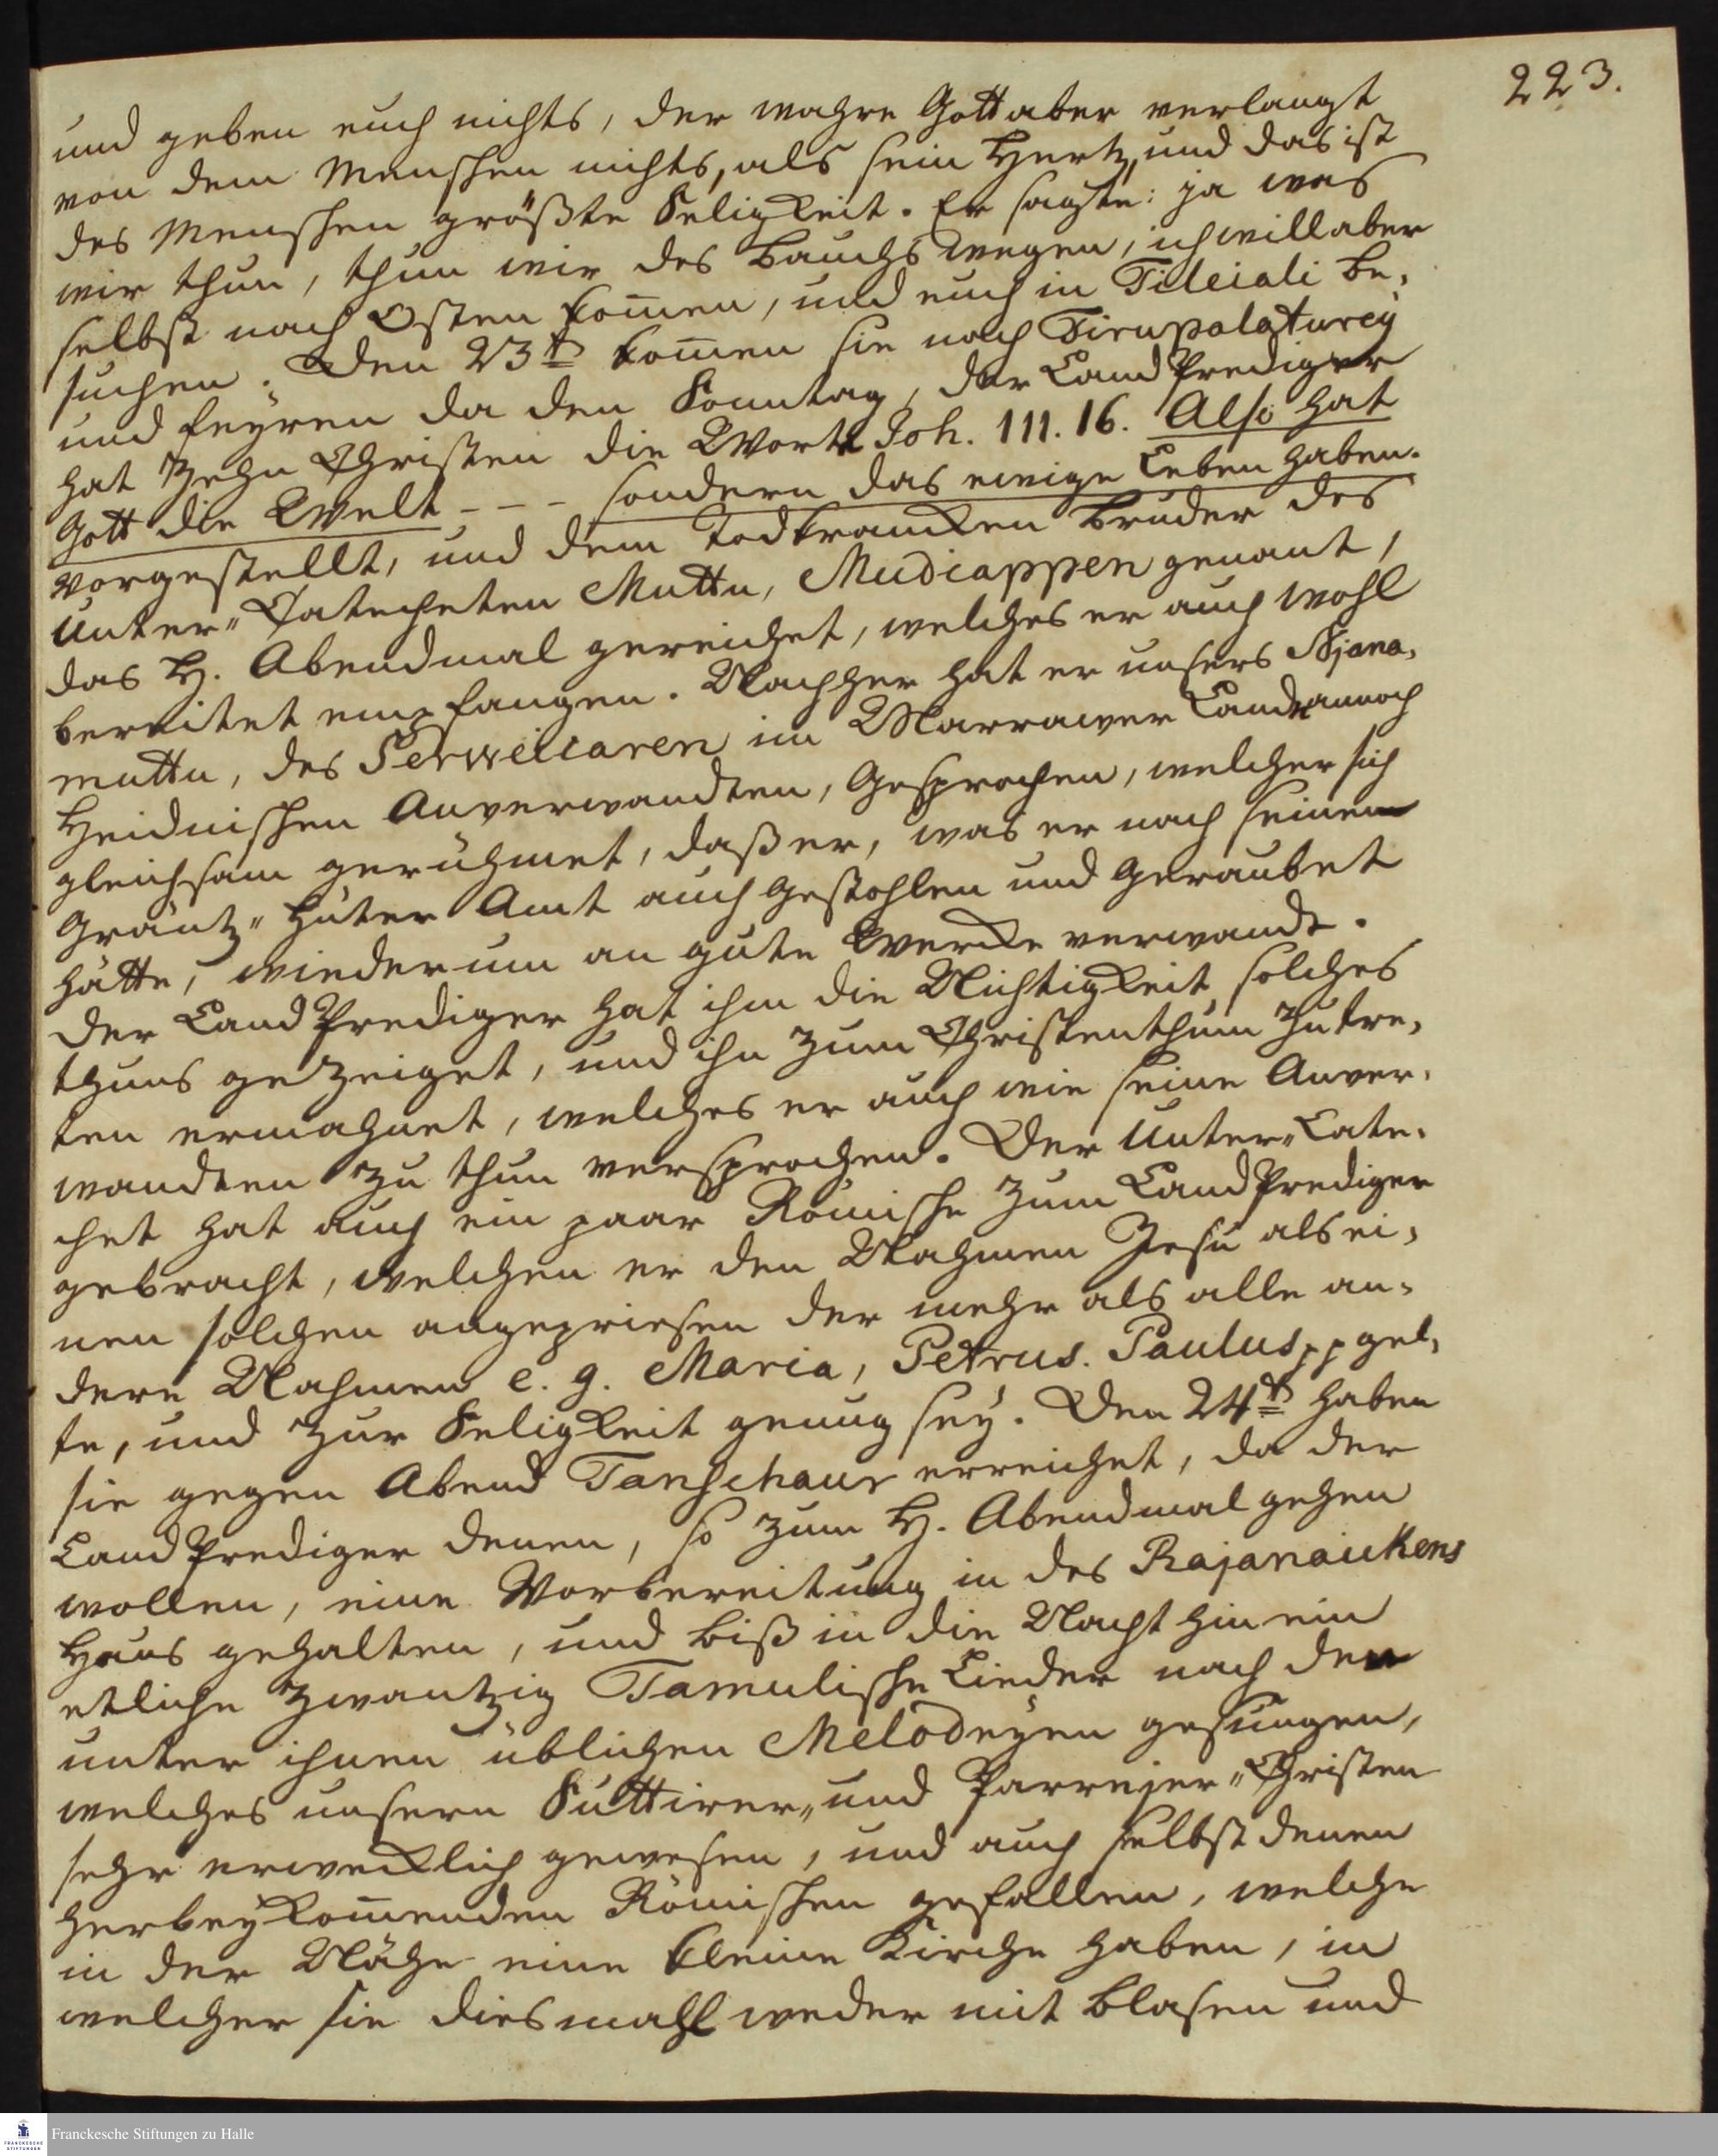 223.
und geben euch nichts, der wahre Gott aber verlangt
von dem Menschen nichts, als sein Hertz, und das ist
des Menschen größte Seligkeit. Er sagte: ja was
wir thun, thun wir des Bauchs wegen, ich will aber
selbst nach Osten kom̄en, und euch in Tileiali be-
suchen. Den 23t kom̄en sie nach Tirupalaturey
und feyren da den Sonntag, der Land Prediger
hat zehn Christen die Worte Joh. III. 16. Also hat
Gott die Welt - - - sondern das ewige Leben haben.
vorgestellt, und dem Todkrancken Bruder des
Unter-Catecheten Muttu, Mudiappen genant,
das H. Abendmal gereichet, welches er auch wohl
bereitet empfangen. Nachher hat er unsers Njana-
muttu, des Serweicaren im Marrawer Lande annoch
Heidnischen Anverwandten, gesprochen, welcher sich
gleichsam gerühmet, daß er, was er nach seinem
Gräntz-Hüter Amt auch gestohlen und geraubet
hätte, wiederum an gute Wercke verwandt.
Der Land Prediger hat ihm die Nichtigkeit solches
thuns gezeiget, und ihn zum Christenthum zu tre-
ten ermahnet, welches er auch wie seine Anver-
wandten zu thun versprochen. Der Unter-Cate-
chet hat auch ein paar Römische zum Land Prediger
gebracht, welchen er den Nahmen Jesu als ei-
nen solchen angepriesen der mehr als alle an-
dere Nahmen e. g. Maria, Petrus. Paulus pp gel-
te, und zur Seligkeit genug sey. Den 24t haben
sie gegen Abend Tanschaur erreichet, da der
Land Prediger denen, so zum H. Abendmal gehen
wollen, eine Vorbereitung in des Rajanaickens
Haus gehalten, und biß in die Nacht hin ein
etliche zwantzig Tamulische Lieder nach den
unter ihnen üblichen Melodeyen gesungen,
welches unsern Suttirer- und Parreier-Christen
sehr erwecklich gewesen, und auch selbst denen
herbey kom̄enden Römischen gefallen, welche
in der Nähe eine kleine Kirche haben, in
welcher sie diesmahl weder mit Blasen und
Franckesche Stiftungen zu Halle